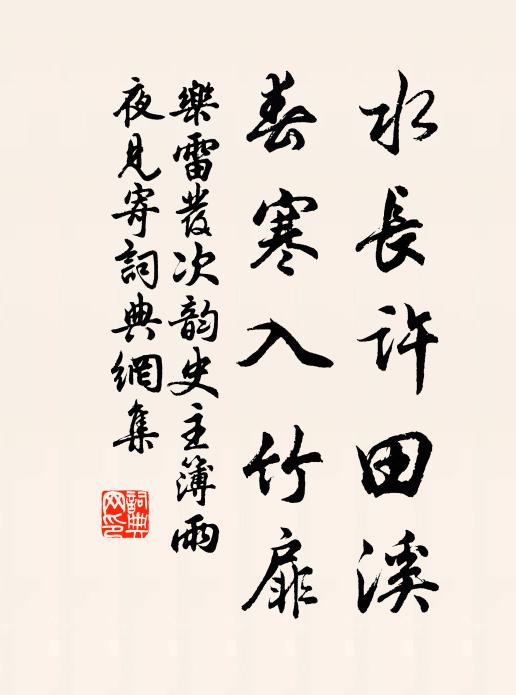 水長許田溪
春寒入竹扉
樂雷發次韵史主簿雨
夜見寄詞典網集
詞典
网印